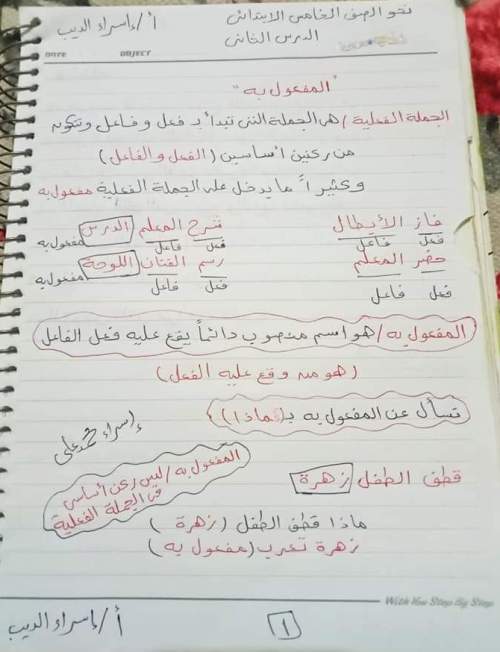 نحو الصف الخامس الابتدائى
أ / إسراء الديب
الدرس الثانى
DATE OBJECT
"المفعول به"
الجملة الفعلية / هى الجملة التى تبدأ بـ فعل و فاعل وتتكون
من ركنين أساسين (الفعل والفاعل)
وكثيراً ما يدخل على الجملة الفعلية مفعول به
فاز الأبطال شرح المعلم الدرس
فعل فاعل فعل فاعل مفعول به
حضر المعلم رسم الفنان اللوحة
فعل فاعل فعل فاعل مفعول به
المفعول به / هو اسم منصوب دائماً يقع عليه فعل الفاعل
(هو من وقع عليه الفعل)
تسأل عن المفعول به بـ (ماذا)
إسراء محمد على
المفعول به / ليس ركن أساسى
فى الجملة الفعلية
قطف الطفل زهرة
ماذا قطف الطفل (زهرة)
زهرة تعرب (مفعول به)
With You Step By Step
أ / إسراء الديب
١